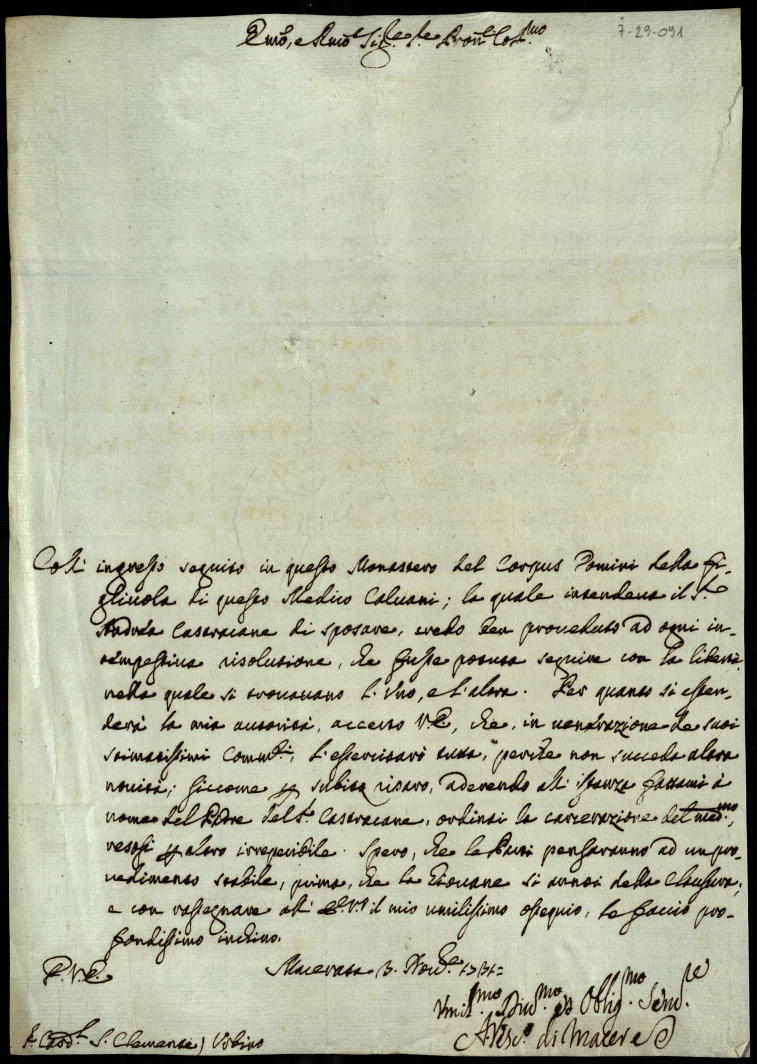 Em̃o, e Rm̃o Sig.re Sig.re Pron̄ Col.mo
7-29-091
Coll' ingresso seguito in questo Monastero del Corpus Domini della fi-
gliuola di questo Medico Caluani; la quale intendeua il S.re
Andrea Castracane di sposare, credo ben proueduto ad ogni in-
tempestiua risoluzione, che fusse potuta seguire con la libertà
nella quale si trouauano l'Vno, e l'altra. Per quanto si esten-
derà la mia autorità, accerto V.E., che, in uenerazione de suoi
stimatissimi Com̃di, l'essercitarò tutta, perche non succeda altra
nouità; siccome subito, aderendo all' istanza fattami à
nome del Padre del S.r Castracane, ordinai la carcerazione del med.mo,
resosi altro irreperibile. Spero, che le Parti pensaranno ad un pro-
uedimento stabile, prima, che la Giouane si anuoi della Clausura;
e con rassegnare all' E.V. il mio umilissimo ossequio, le faccio pro-
fondissimo inchino.
P.V.E. Macerata 3. Nou.re 1731=
Vmil.mo Diu.mo et Oblig.mo Seru.re
A Vesc.o di Macerata
S. Clemente) Vrbino